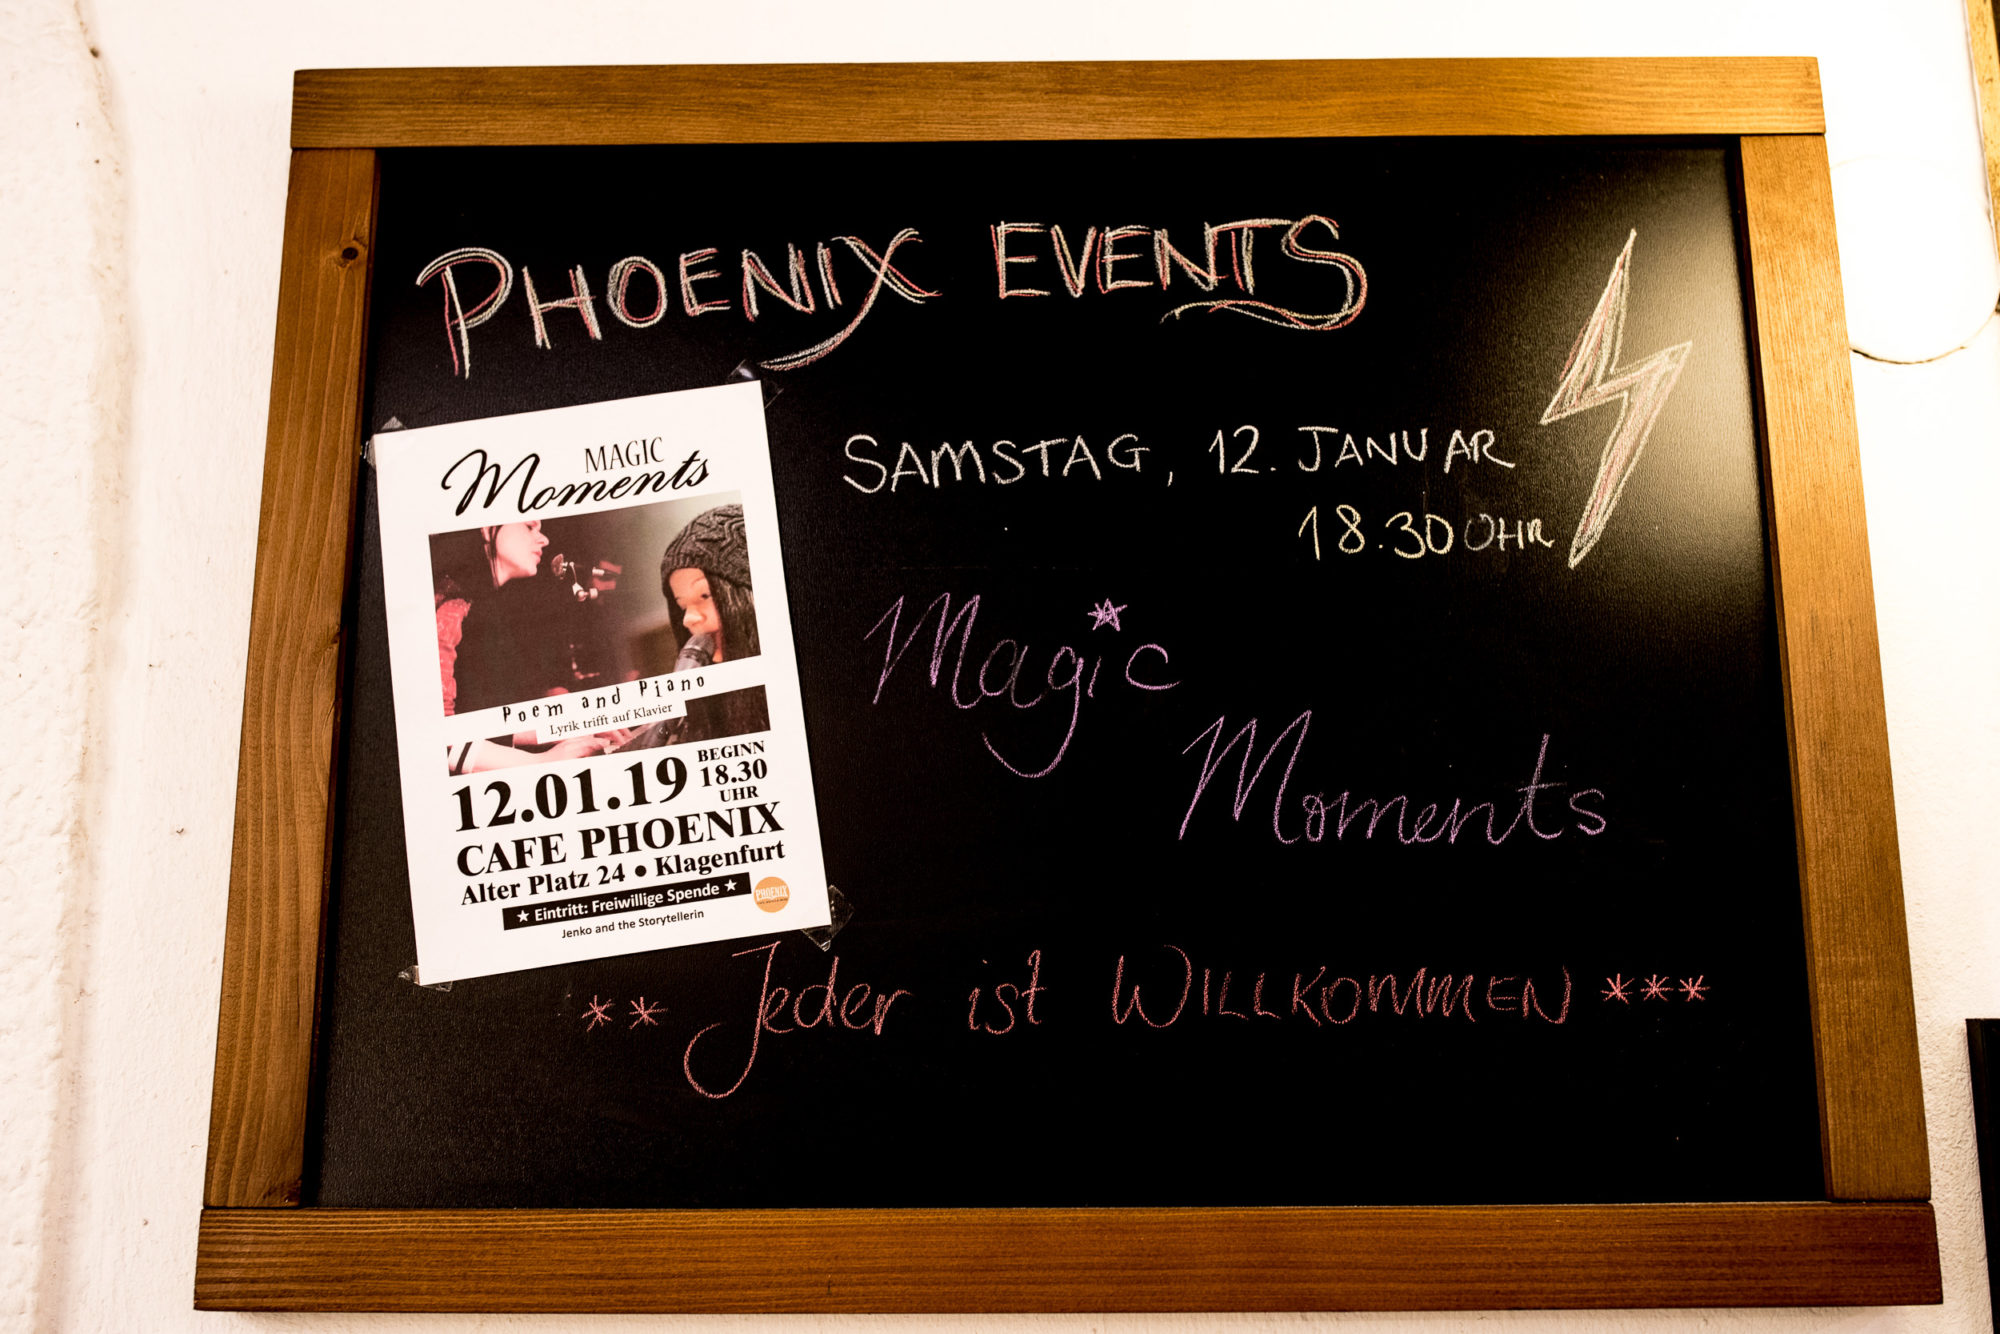 PHOENIX EVENTS
SAMSTAG, 12. JANUAR
18.30 UHR
Magic
Moments
** Jeder ist WILLKOMMEN ***
MAGIC
Moments
Poem and Piano
Lyrik trifft auf Klavier
12.01.19 BEGINN 18.30 UHR
CAFE PHOENIX
Alter Platz 24 • Klagenfurt
★ Eintritt: Freiwillige Spende ★
Jenko and the Storytellerin
PHOENIX